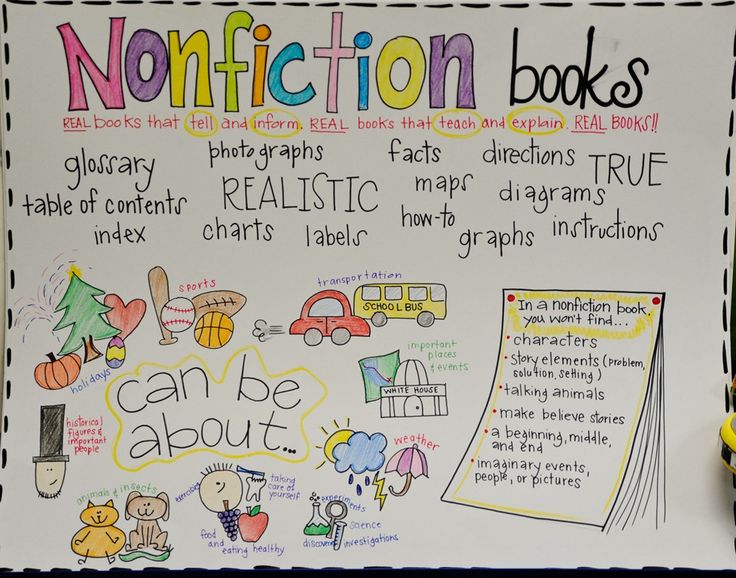 Nonfiction books
REAL books that tell and inform. REAL books that teach and explain. REAL BOOKS!!
glossary
photographs
facts
directions
TRUE
table of contents
REALISTIC
maps
diagrams
index
charts
labels
how-to
graphs
instructions
holidays
sports
transportation
SCHOOL BUS
important
places
& events
WHITE HOUSE
can be
about...
historical
figures &
important
people
weather
animals & insects
exercising
taking
care of
yourself
food
and
eating healthy
experiments
science
discoveries
investigations
In a nonfiction book,
you won't find...
• characters
• story elements (problem,
solution, setting)
• talking animals
• make believe stories
• a beginning, middle,
and end
• imaginary events,
people, or pictures